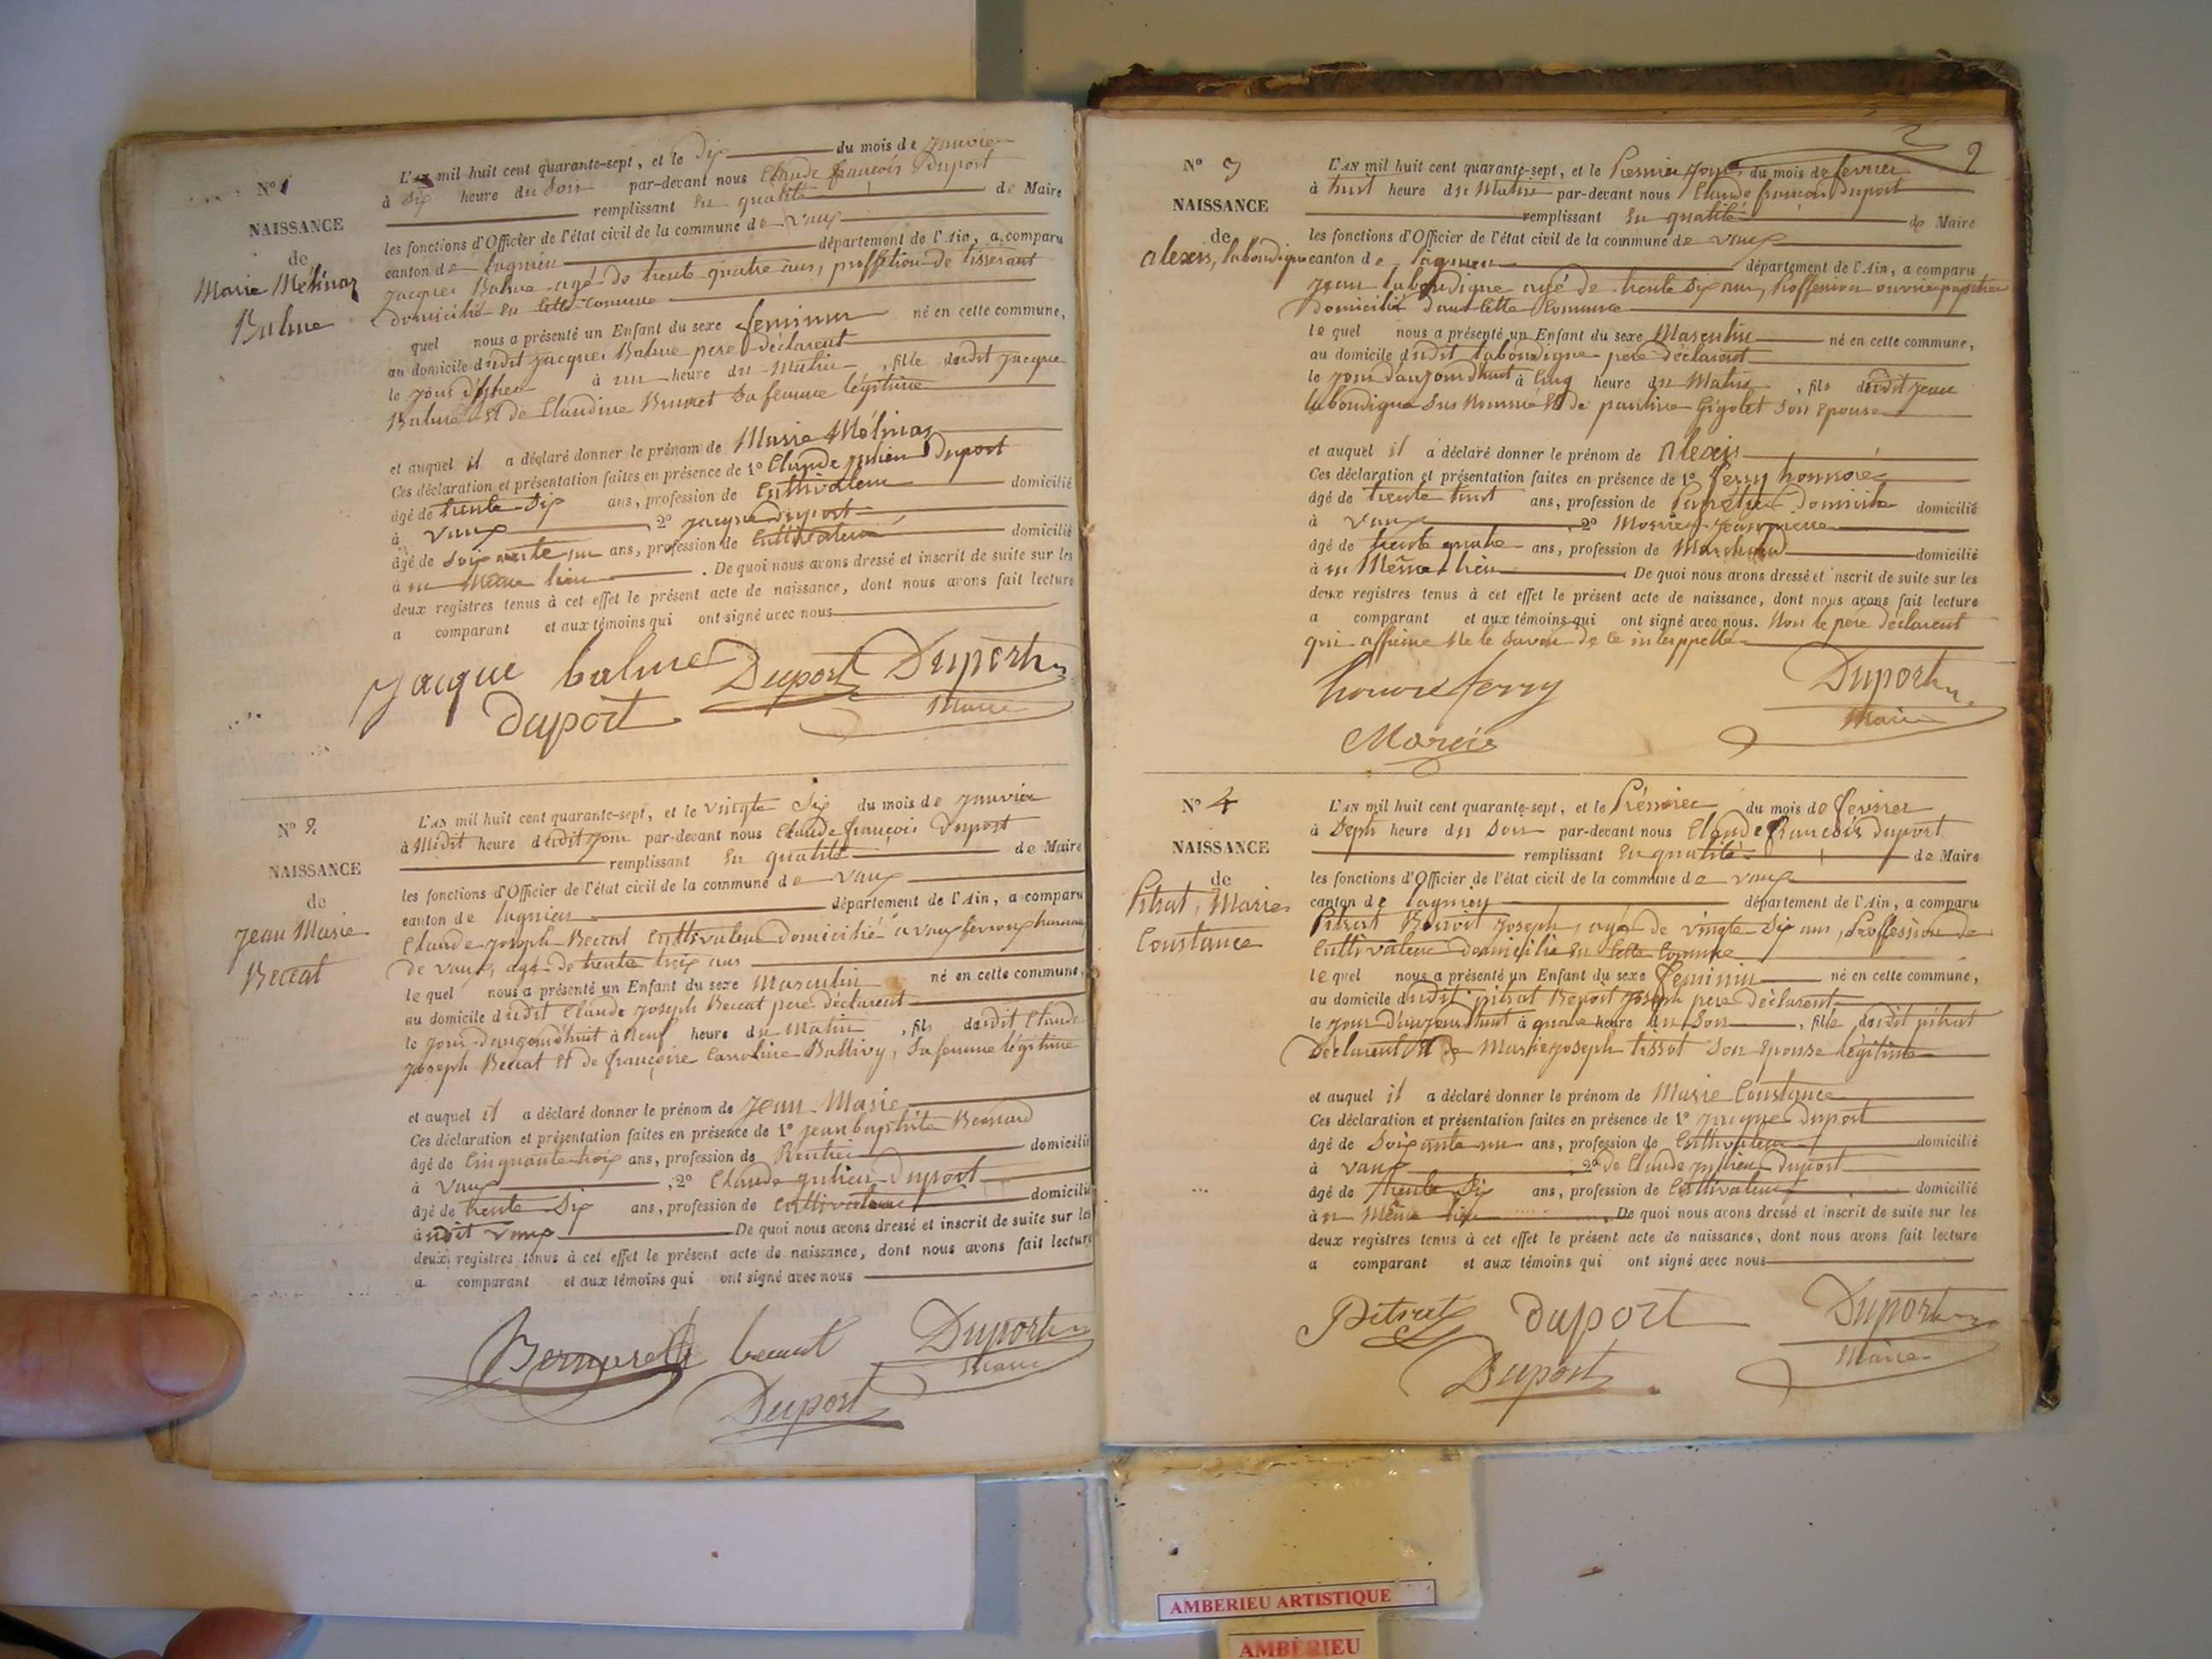 N° 1
NAISSANCE
de
Marie Mélinas
Balme
L'AN mil huit cent quarante-sept, et le dix du mois de janvier
à six heure du soir par-devant nous Claude françois Duport
remplissant en qualité de Maire
les fonctions d'Officier de l'état civil de la commune de Vaux
canton de Lagnieu département de l'Ain, a comparu
jacques Balme agé de trente quatre ans, proffetion de tisserant
domicilié en cette commune
quel nous a présenté un Enfant du sexe feminin né en cette commune,
au domicile dudit jacques Balme pere déclarent
le jour d'hier à un heure du Matin , fille dudit jacque
Balme et de Claudine Brunet sa femme légitime
et auquel il a déclaré donner le prénom de Marie Mélinas
Ces déclaration et présentation faites en présence de 1° Claude julien Duport
âgé de trente six ans, profession de Cultivateur domicilié
à Vaux , 2° jacque duport
âgé de soixante un ans, profession de Cultivateur domicilié
à au même lieu . De quoi nous avons dressé et inscrit de suite sur les
deux registres tenus à cet effet le présent acte de naissance, dont nous avons fait lecture
a comparant et aux témoins qui ont signé avec nous
jacque balme Duport Duport
duport Maire
N° 2
NAISSANCE
de
jean Marie
Beccat
L'AN mil huit cent quarante-sept, et le vingte six du mois de janvier
à Midit heure dudit jour par-devant nous Claude françois Duport
remplissant en qualité de Maire
les fonctions d'Officier de l'état civil de la commune de Vaux
canton de lagnieu département de l'Ain, a comparu
Claude joseph Beccat Cultivateur domicilié à vaux
de vaux, agé de trente trois ans
le quel nous a présenté un Enfant du sexe Masculin né en cette commune,
au domicile dudit Claude joseph Beccat pere déclarent
le jour d'aujourd'huit à neuf heure du Matin , fils dudit Claude
joseph Beccat et de françoise Carroline Ballivy, sa femme légitime
et auquel il a déclaré donner le prénom de jean Marie
Ces déclaration et présentation faites en présence de 1° jean baptiste Bernard
âgé de Cinquante troix ans, profession de Rentier domicilié
à Vaux , 2° Claude julien Duport
âgé de trente six ans, profession de Cultivateur domicilié
à udit vaux De quoi nous avons dressé et inscrit de suite sur les
deux registres tenus à cet effet le présent acte de naissance, dont nous avons fait lecture
a comparant et aux témoins qui ont signé avec nous
Bernard beccat Duport
Duport Maire
2
N° 3
NAISSANCE
de
alexis, laboudigue
L'AN mil huit cent quarante-sept, et le Premier jour du mois de fevrier
à huit heure du Matin par-devant nous Claude françois duport
remplissant en qualité de Maire
les fonctions d'Officier de l'état civil de la commune de vaux
canton de lagnieu département de l'Ain, a comparu
jean laboudigue agé de trente six ans, proffession ouvrier papetier
Domicilié dans cette Commune
le quel nous a présenté un Enfant du sexe Masculin né en cette commune,
au domicile dudit laboudigue pere déclarent
le jour d'aujourdhuit à Cinq heure du Matin , fils dudit jean
laboudigue sus nommé et de pauline Gigolet son épouse
et auquel il a déclaré donner le prénom de alexis
Ces déclaration et présentation faites en présence de 1° ferry honnoré
âgé de trente huit ans, profession de Papetier Domicile domicilié
à Vaux , 2° jean pierre
âgé de trente quatre ans, profession de Marchand domicilié
à au Même lieu . De quoi nous avons dressé et inscrit de suite sur les
deux registres tenus à cet effet le présent acte de naissance, dont nous avons fait lecture
a comparant et aux témoins qui ont signé avec nous. Non le pere déclarent
qui affirme ne le savoir de ce interppellé
honoré ferry Duport
Maire
N° 4
NAISSANCE
de
Pitrat, Marie
Constance
L'AN mil huit cent quarante-sept, et le Prémier du mois de fevrier
à Septs heure du Soir par-devant nous Claude françois duport
remplissant en qualité de Maire
les fonctions d'Officier de l'état civil de la commune de vaux
canton de lagnieu département de l'Ain, a comparu
Pitrat Benoit joseph, agé de vingte six ans, Proffession de
Cultivateur domicilié en cette Commune
le quel nous a présenté un Enfant du sexe feminin né en cette commune,
au domicile dudit pitrat Benoit joseph pere déclarent
le jour d'aujourdhuit à quatre heure du Soir , fille dudit pitrat
Déclarent et de Marie joseph tissot son épouse légitime
et auquel il a déclaré donner le prénom de Marie Constance
Ces déclaration et présentation faites en présence de 1° jacque Duport
âgé de Soixante un ans, profession de Cultivateur domicilié
à vaux , 2° de Claude julien Duport
âgé de trente six ans, profession de Cultivateur domicilié
à au Même lieu . De quoi nous avons dressé et inscrit de suite sur les
deux registres tenus à cet effet le présent acte de naissance, dont nous avons fait lecture
a comparant et aux témoins qui ont signé avec nous
Pitrat duport Duport
Duport Maire
AMBERIEU ARTISTIQUE
AMBÉRIEU